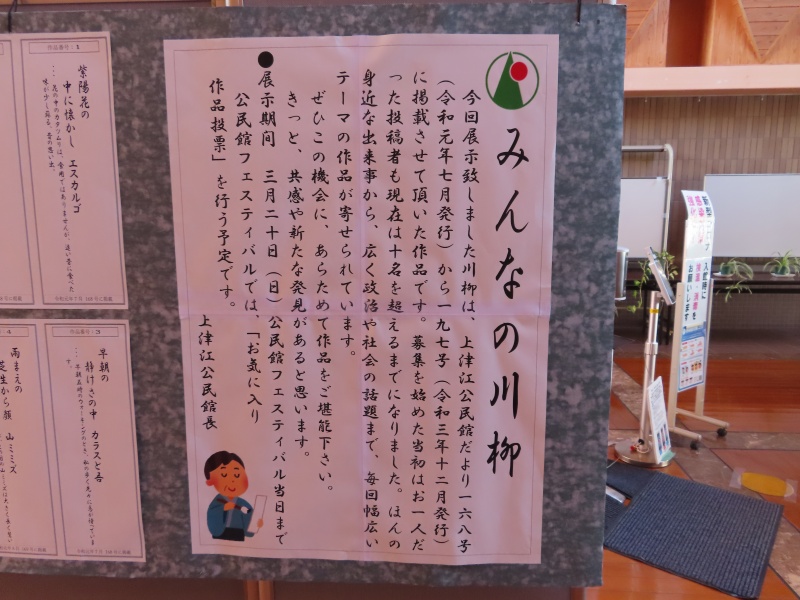 みんなの川柳
今回展示致しました川柳は、上津江公民館だより一六八号
（令和元年七月発行）から一九七号（令和三年十二月発行）
に掲載させて頂いた作品です。募集を始めた当初はお一人だ
った投稿者も現在は十名を超えるまでになりました。ほんの
身近な出来事から、広く政治や社会の話題まで、毎回幅広い
テーマの作品が寄せられています。
ぜひこの機会に、あらためて作品をご堪能下さい。
きっと、共感や新たな発見があると思います。
●展示期間　三月二十日（日）公民館フェスティバル当日まで
公民館フェスティバルでは、「お気に入り
作品投票」を行う予定です。
上津江公民館長
作品番号：1
紫陽花の
中に懐かし　エスカルゴ
作品番号：3
早朝の
静けさの中　カラスと吾
雨まえの
芝生から顔　山ミミズ
新型
入館時に
検温・消毒を
お願いします